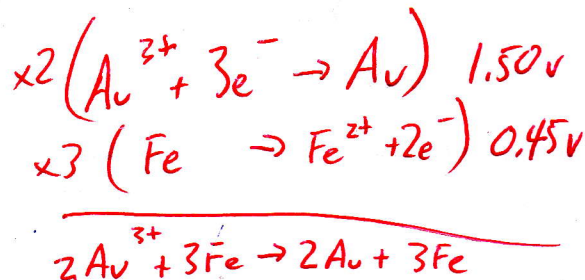 x2(Au³⁺ + 3e⁻ → Au) 1.50v
x3(Fe → Fe²⁺ + 2e⁻) 0.45v
2Au³⁺ + 3Fe → 2Au + 3Fe